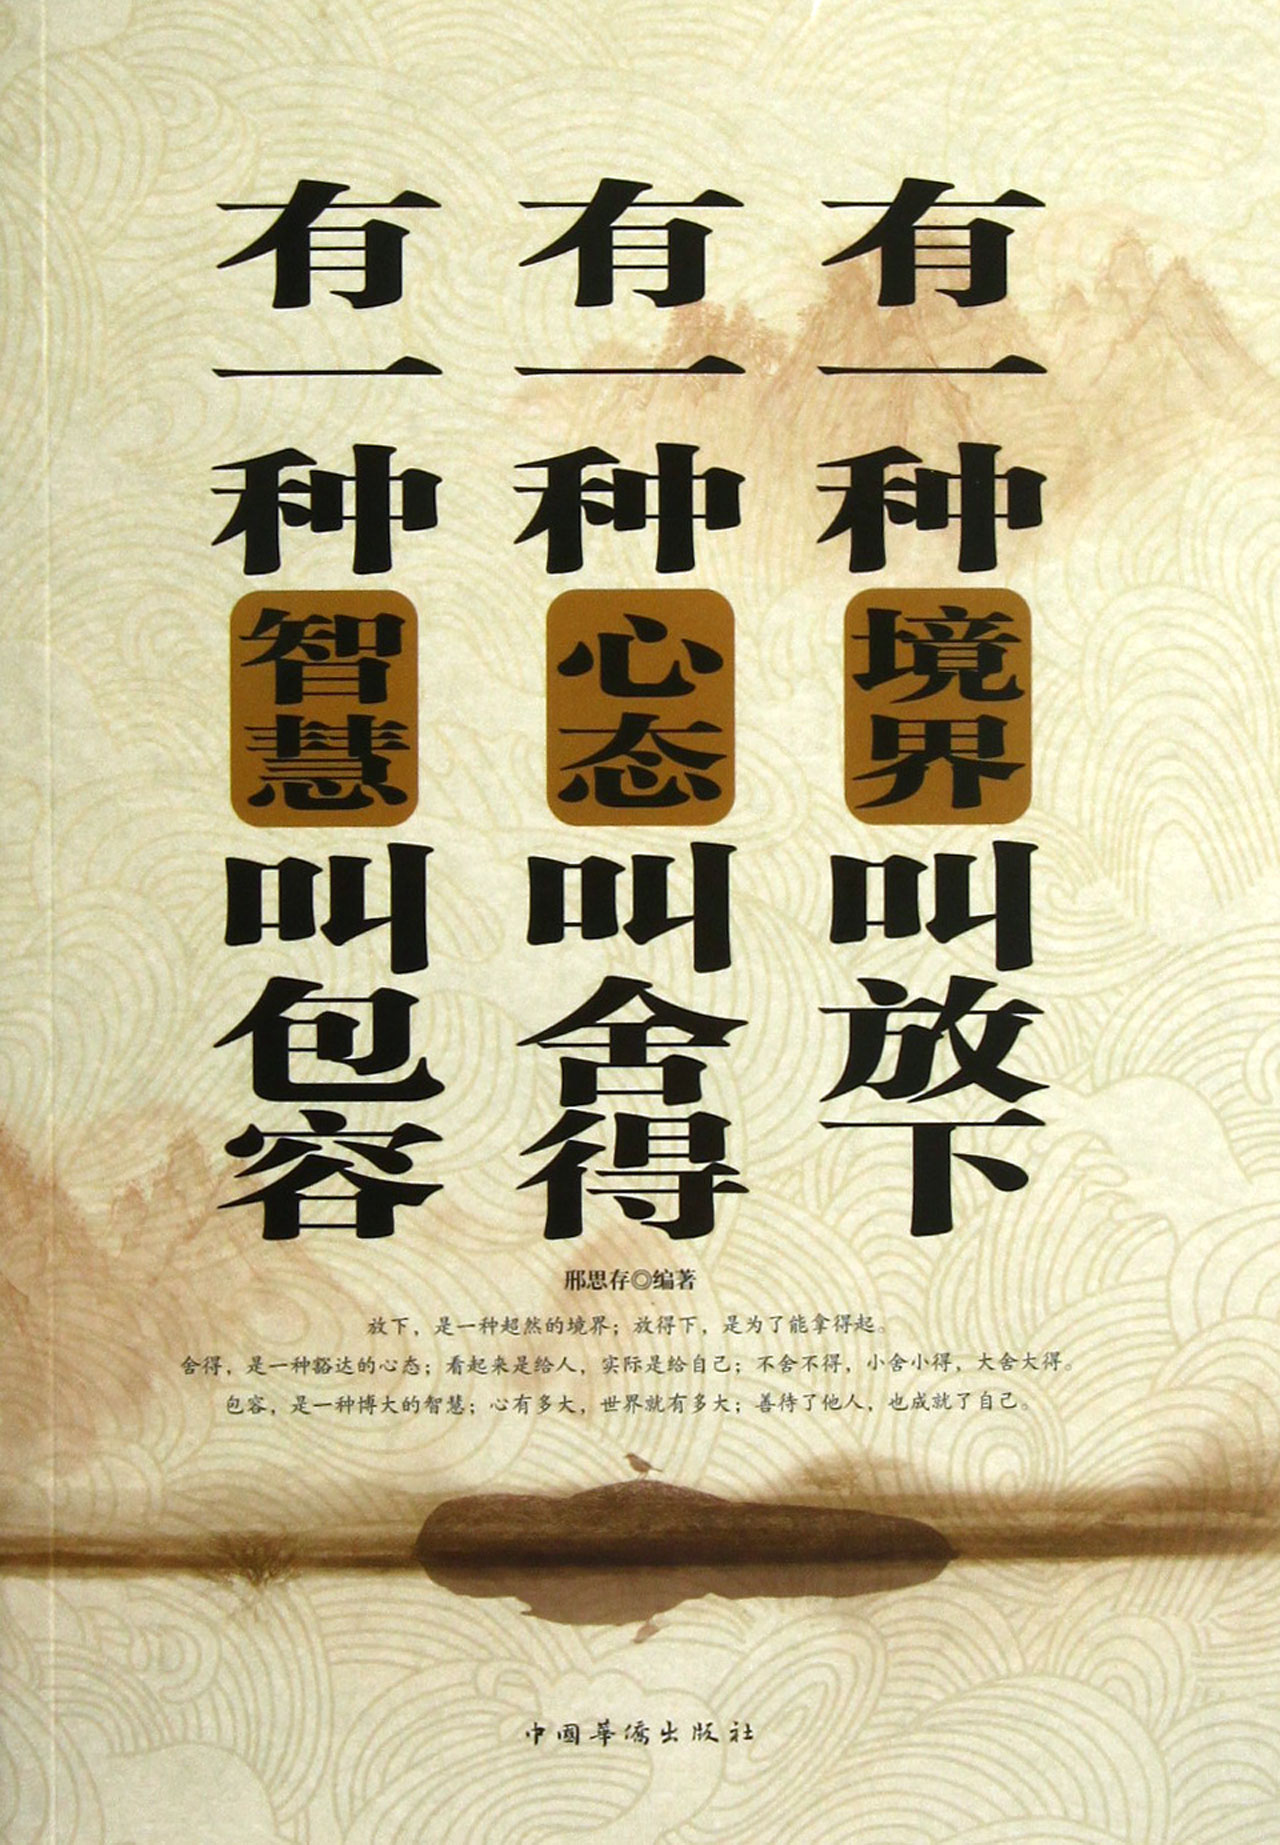 有一种境界叫放下
有一种心态叫舍得
有一种智慧叫包容
邢思存◎编著
放下，是一种超然的境界；放得下，是为了能拿得起。
舍得，是一种豁达的心态；看起来是给人，实际是给自己；不舍不得，小舍小得，大舍大得。
包容，是一种博大的智慧；心有多大，世界就有多大；善待了他人，也成就了自己。
中国華僑出版社